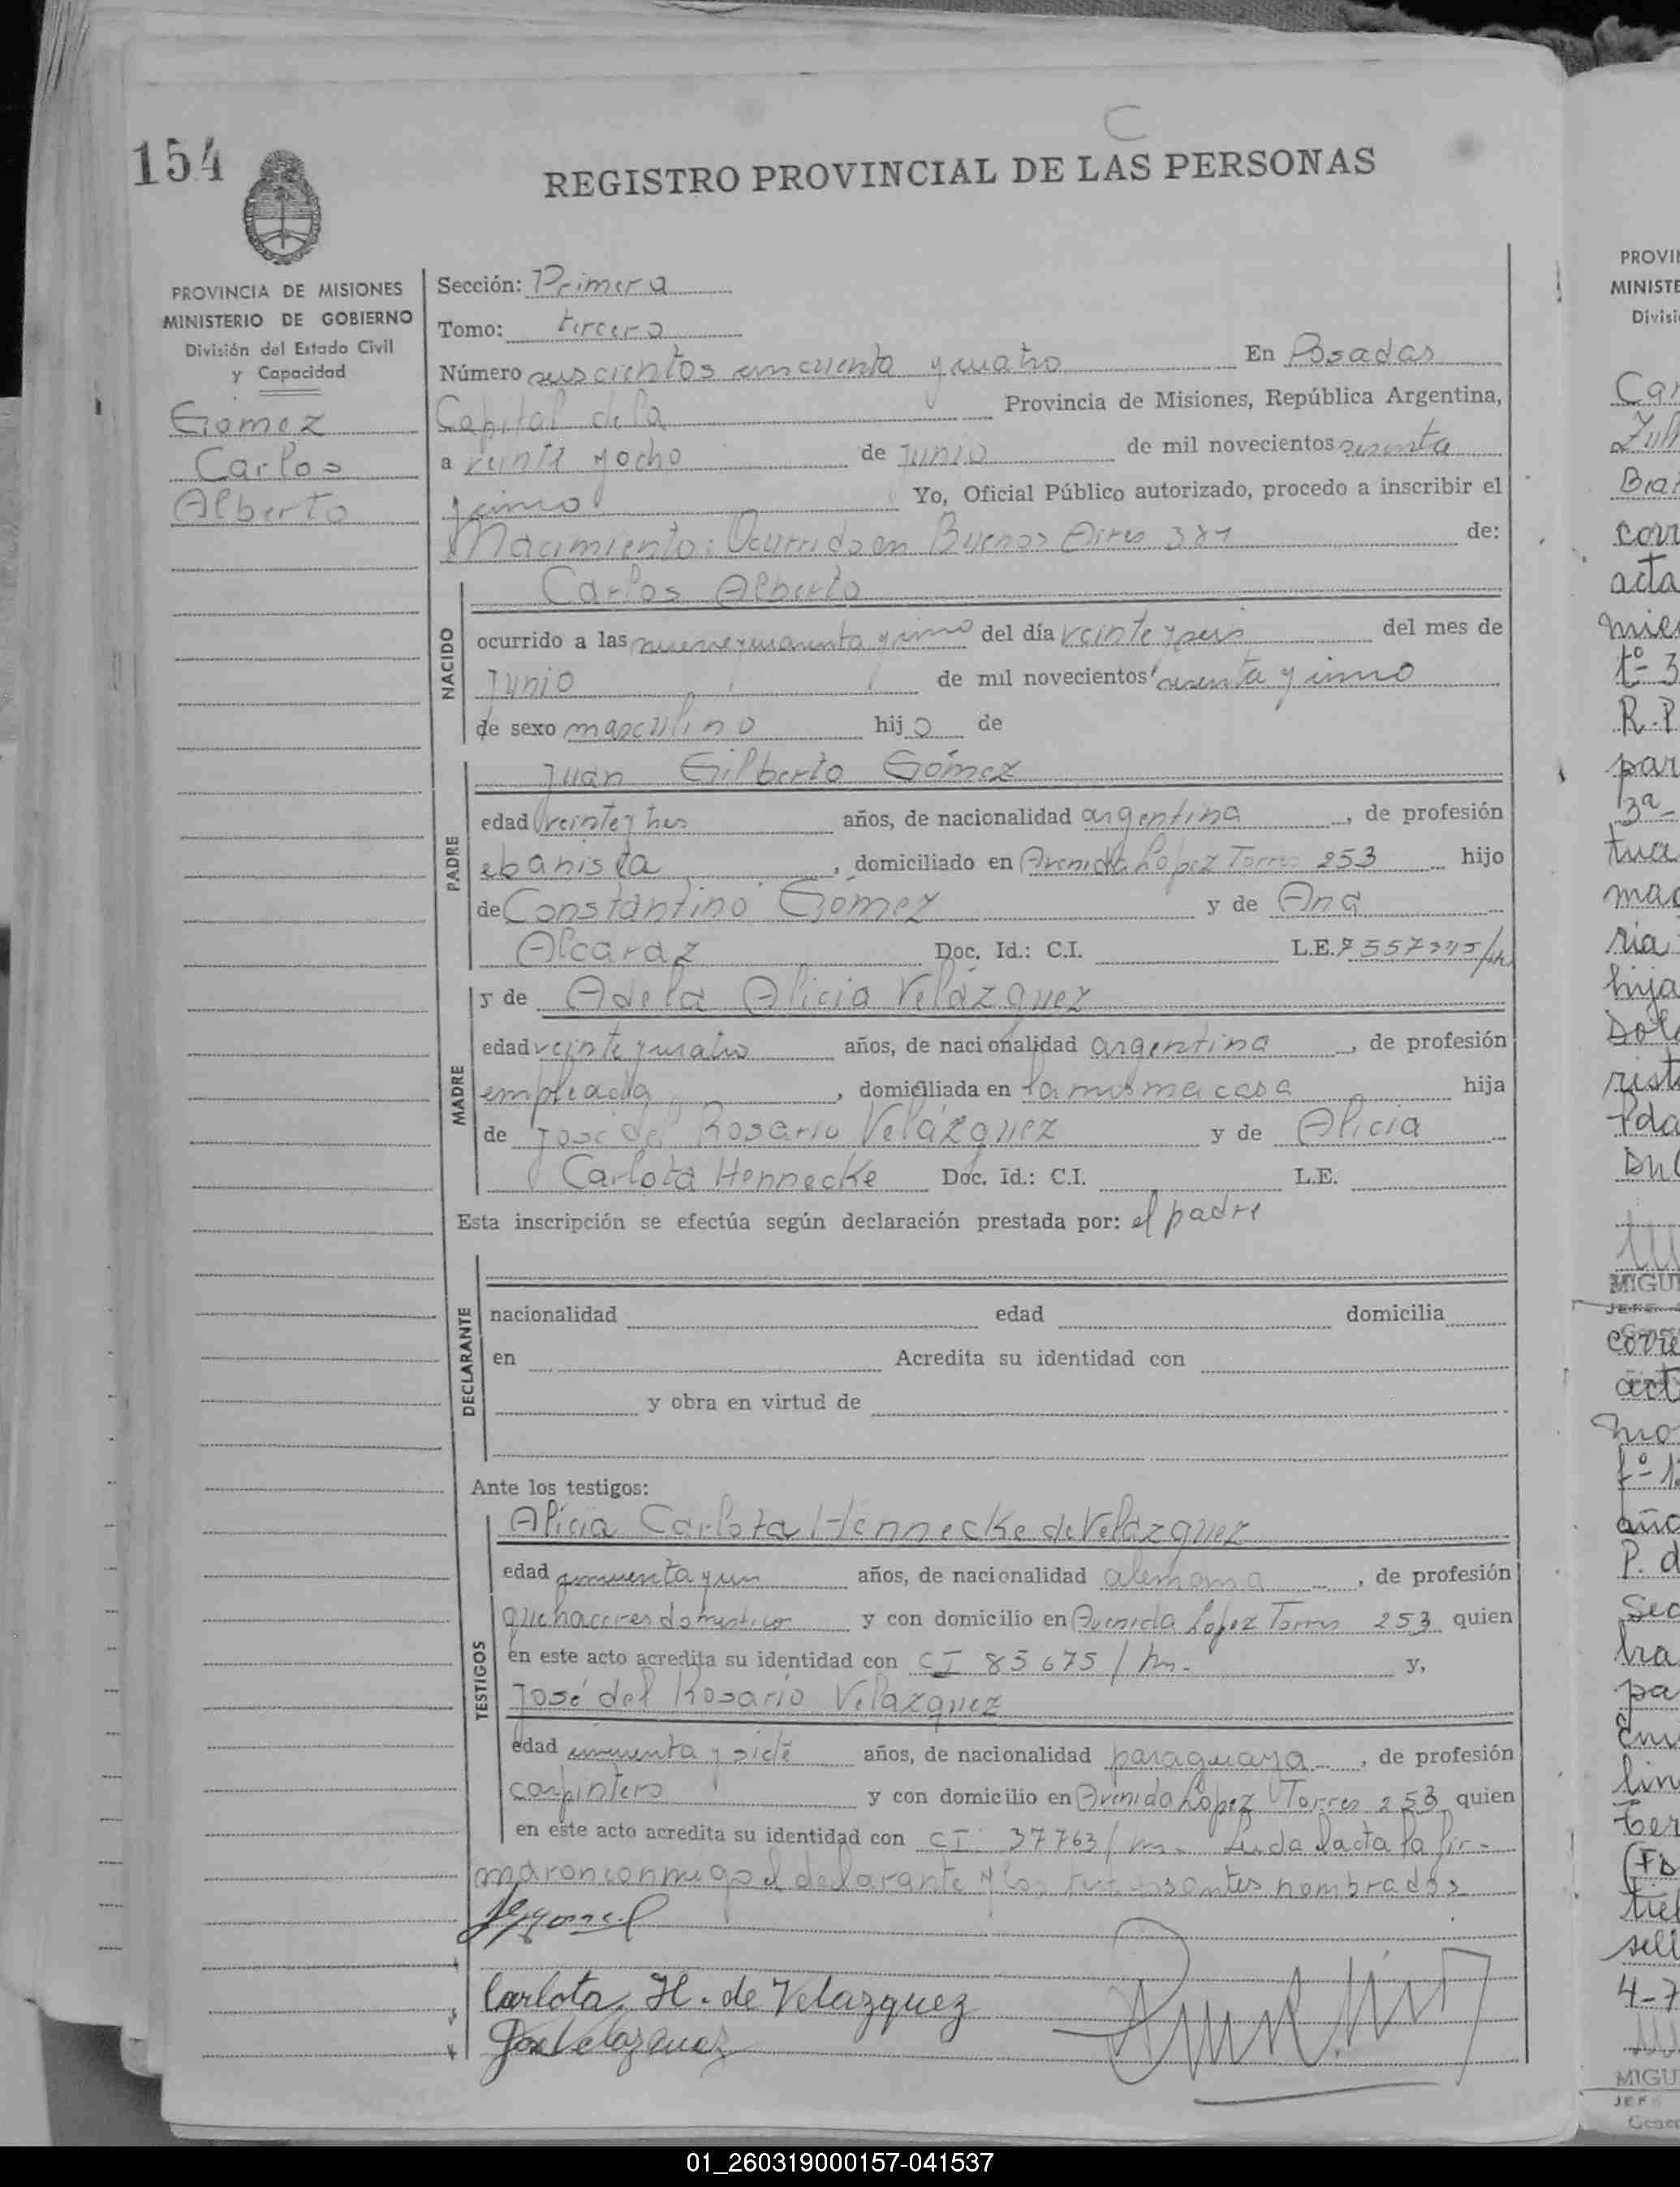 C
154
REGISTRO PROVINCIAL DE LAS PERSONAS
PROVINCIA DE MISIONES
MINISTERIO DE GOBIERNO
División del Estado Civil
y Capacidad
Gómez
Carlos
Alberto
Sección: Primera
Tomo: tercero
Número seiscientos cincuenta y cuatro En Posadas
Capital de la Provincia de Misiones, República Argentina,
a veinte y ocho de Junio de mil novecientos sesenta
y cinco Yo, Oficial Público autorizado, procedo a inscribir el
Nacimiento: Ocurrido en Buenos Aires 381 de:
NACIDO
Carlos Alberto
ocurrido a las nueve y cuarenta y cinco del día veinte y seis del mes de
Junio de mil novecientos sesenta y cinco
de sexo masculino hijo de
PADRE
Juan Gilberto Gómez
edad veinte y tres años, de nacionalidad argentina, de profesión
ebanista, domiciliado en Avenida López Torres 253 hijo
de Constantino Gómez y de Ana
Alcaraz Doc. Id.: C.I. L.E.
MADRE
y de Adela Alicia Velázquez
edad veinte y cuatro años, de nacionalidad argentina, de profesión
empleada, domiciliada en la misma casa hija
de José del Rosario Velázquez y de Alicia
Carlota Hennecke Doc. Id.: C.I. L.E.
Esta inscripción se efectúa según declaración prestada por: el padre
DECLARANTE
nacionalidad edad domicilia
en Acredita su identidad con
y obra en virtud de
Ante los testigos:
TESTIGOS
Alicia Carlota Hennecke de Velázquez
edad cincuenta y un años, de nacionalidad alemana, de profesión
quehaceres domésticos y con domicilio en Avenida López Torres 253 quien
en este acto acredita su identidad con CI 85675/m. y,
José del Rosario Velazquez
edad cincuenta y siete años, de nacionalidad paraguaya, de profesión
carpintero y con domicilio en Avenida López Torres 253 quien
en este acto acredita su identidad con CI 37763/m. Leida lacta la fir-
maron conmigo el declarante y los antes nombrados
Carlota H. de Velazquez
José Velazquez
PROVI
MINISTE
Divisi
MIGU
MIGU
JEF
01_260319000157-041537